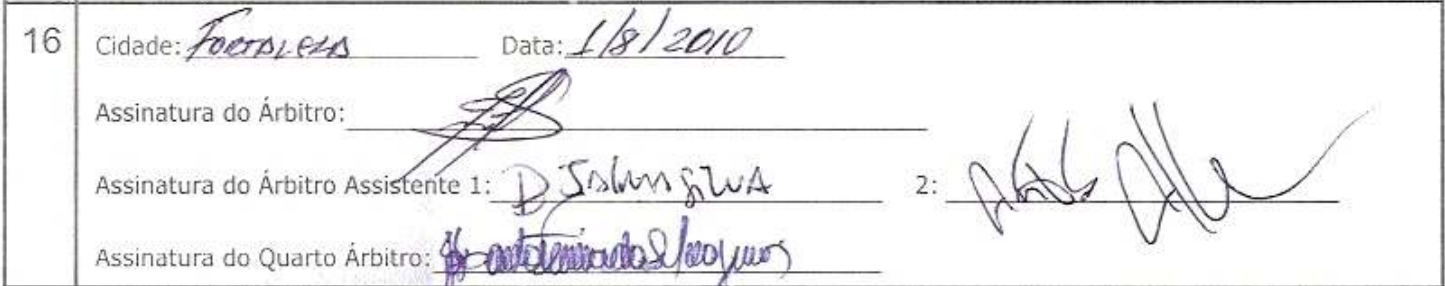 16 Cidade: FORTALEZA Data: 1/8/2010
Assinatura do Árbitro:
Assinatura do Árbitro Assistente 1: Djalma Silva 2:
Assinatura do Quarto Árbitro: